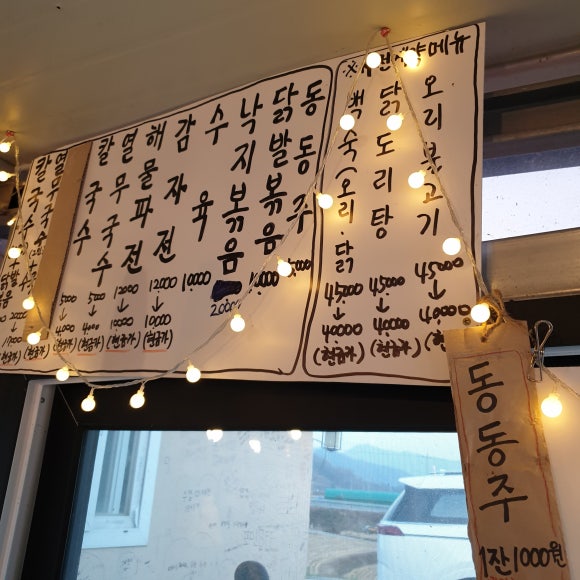 칼국수
멸무국수
칼국수 5000 → 4000 (현금가)
멸무국수 5000 → 4000 (현금가)
해물파전 12000 → 10000 (현금가)
감자전 12000 → 10000 (현금가)
수육 10000
낙지볶음 20000
닭발볶음
동동주 5000
메뉴
백숙(오리.닭) 45000 → 40000 (현금가)
닭도리탕 45000 → 40000 (현금가)
오리불고기 45000 →
동동주
1잔1000원